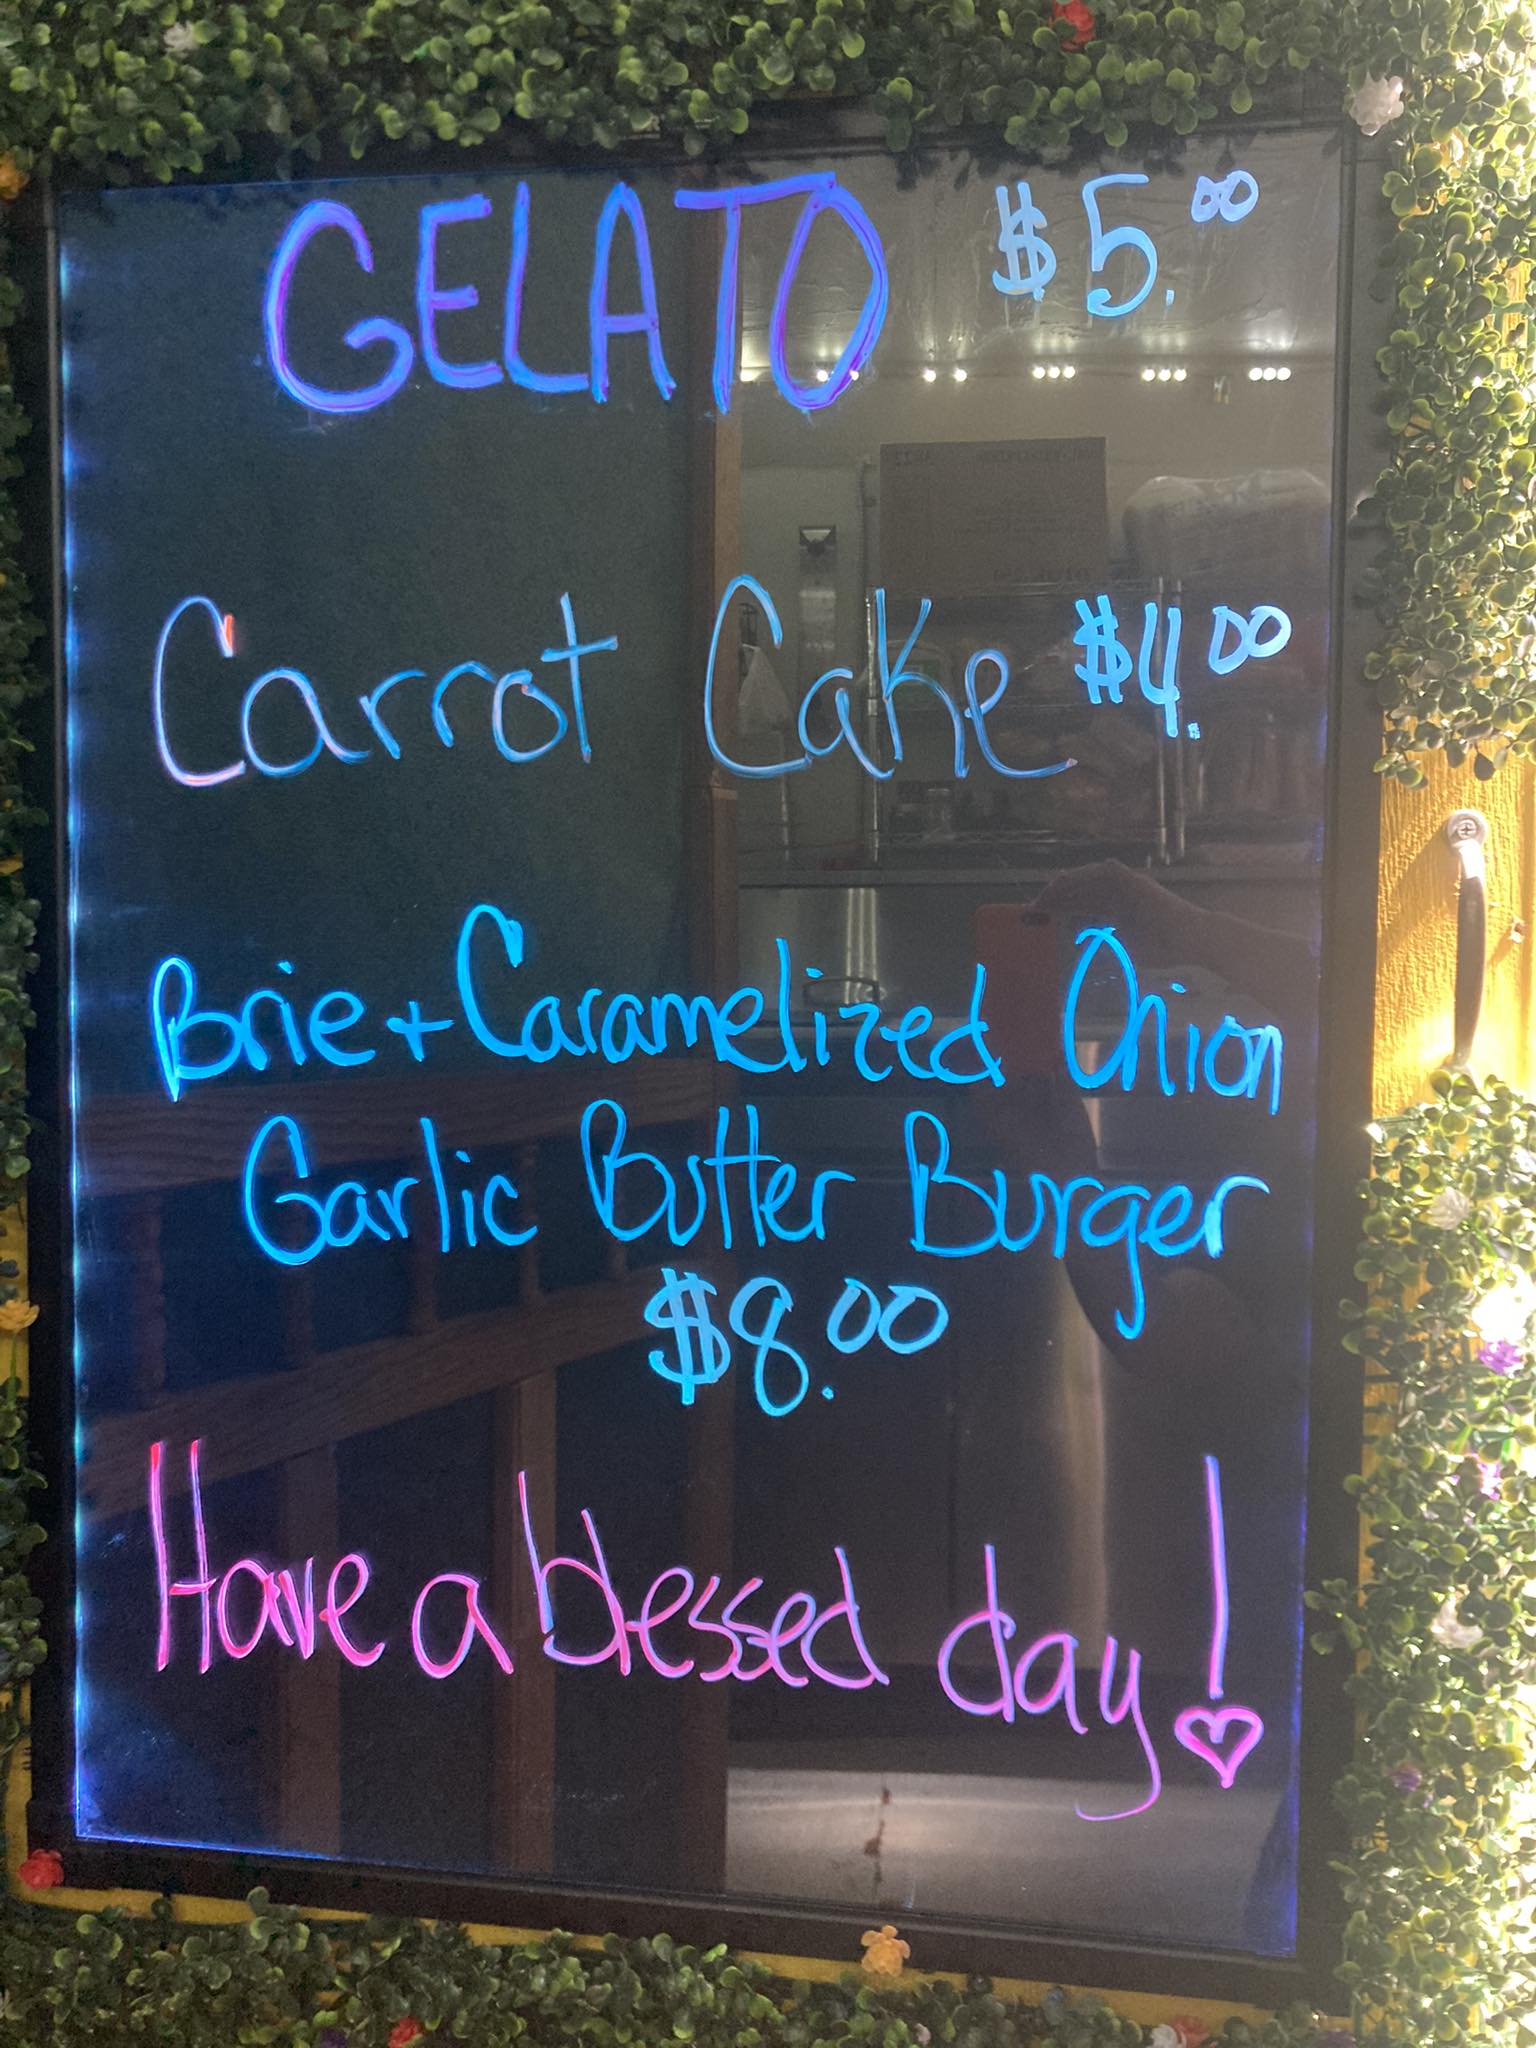 GELATO $5.00
Carrot Cake $4.00
Brie + Caramelized Onion
Garlic Butter Burger
$8.00
Have a blessed day!